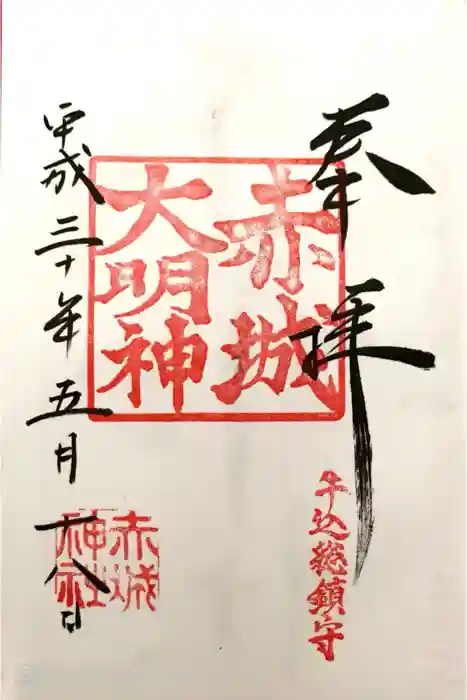 奉拝
牛込総鎮守
赤城
大明神
平成三十年五月十八日
赤城
神社